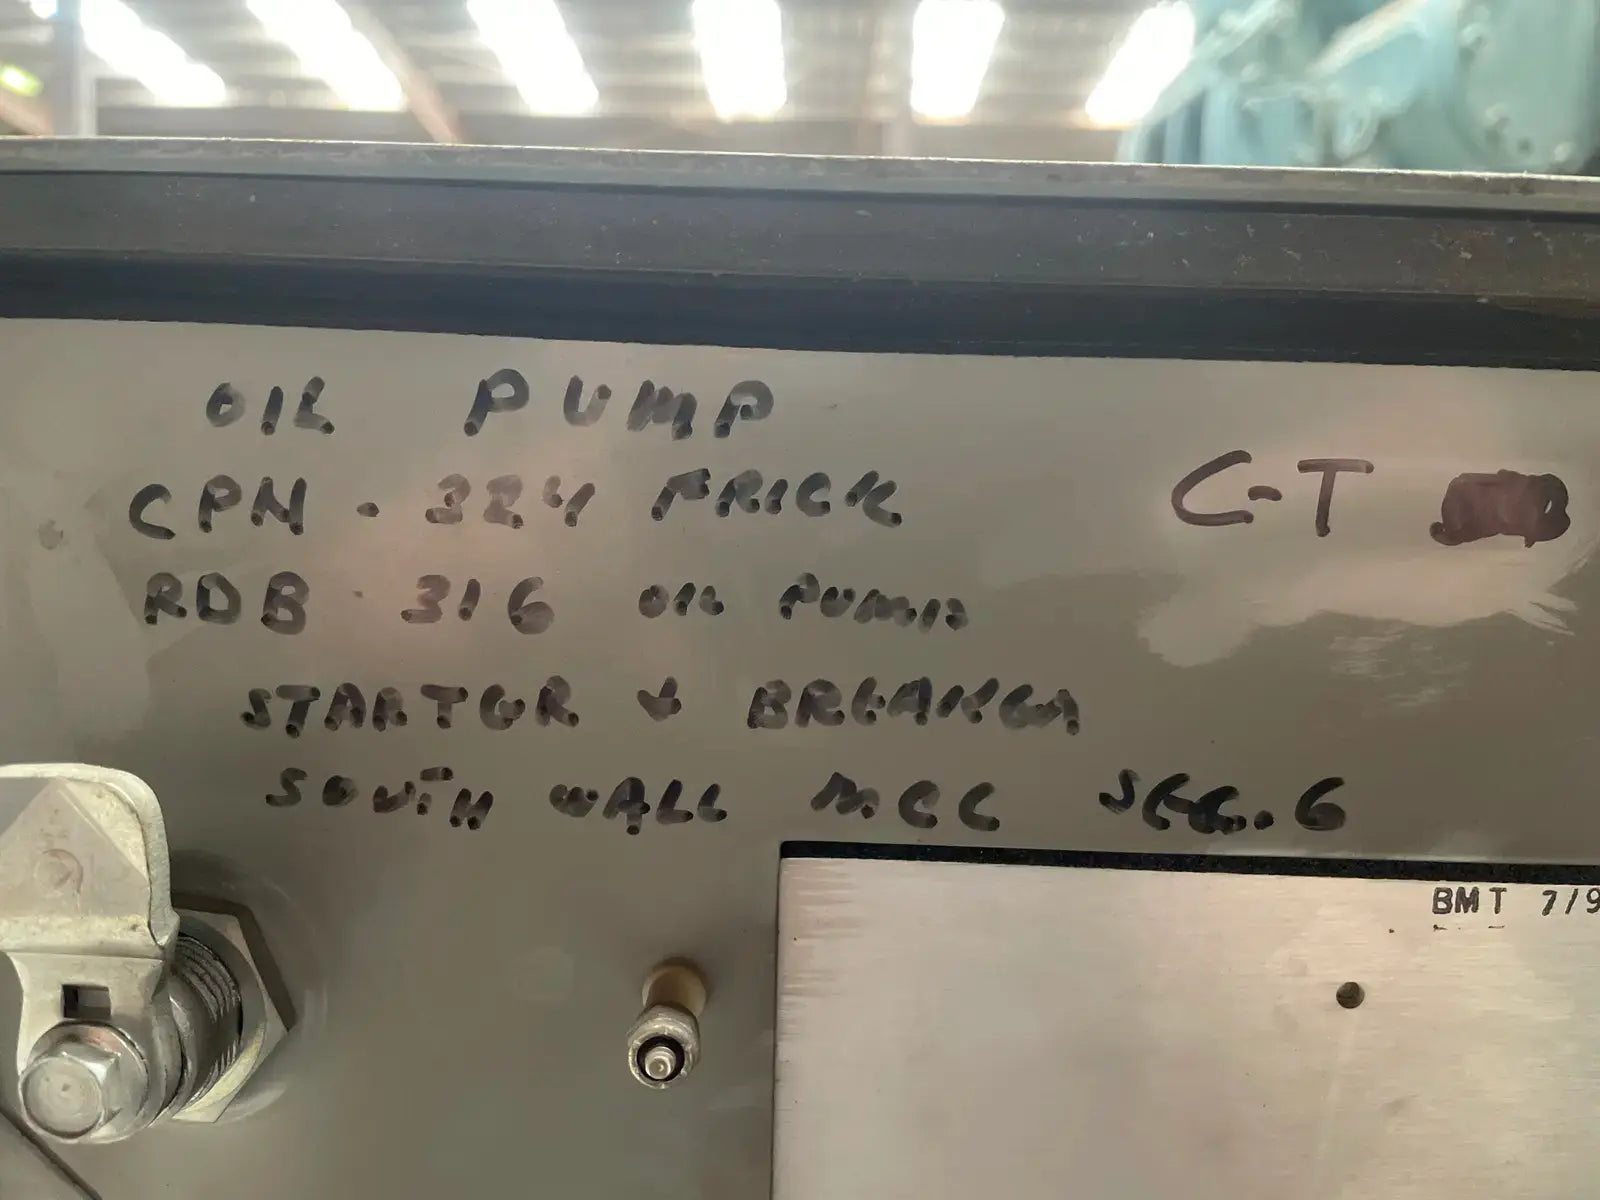 OIL PUMP
CPN - 324 FRICK
C-T
RDB - 316 OIL PUMP
STARTER & BREAKER
SOUTH WALL MCC SEC. 6
BMT 7/9